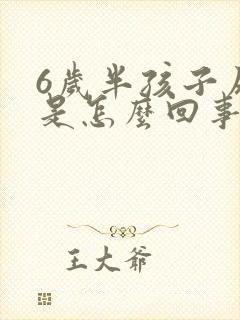 6歲半孩子
是怎麼回事
王大爺